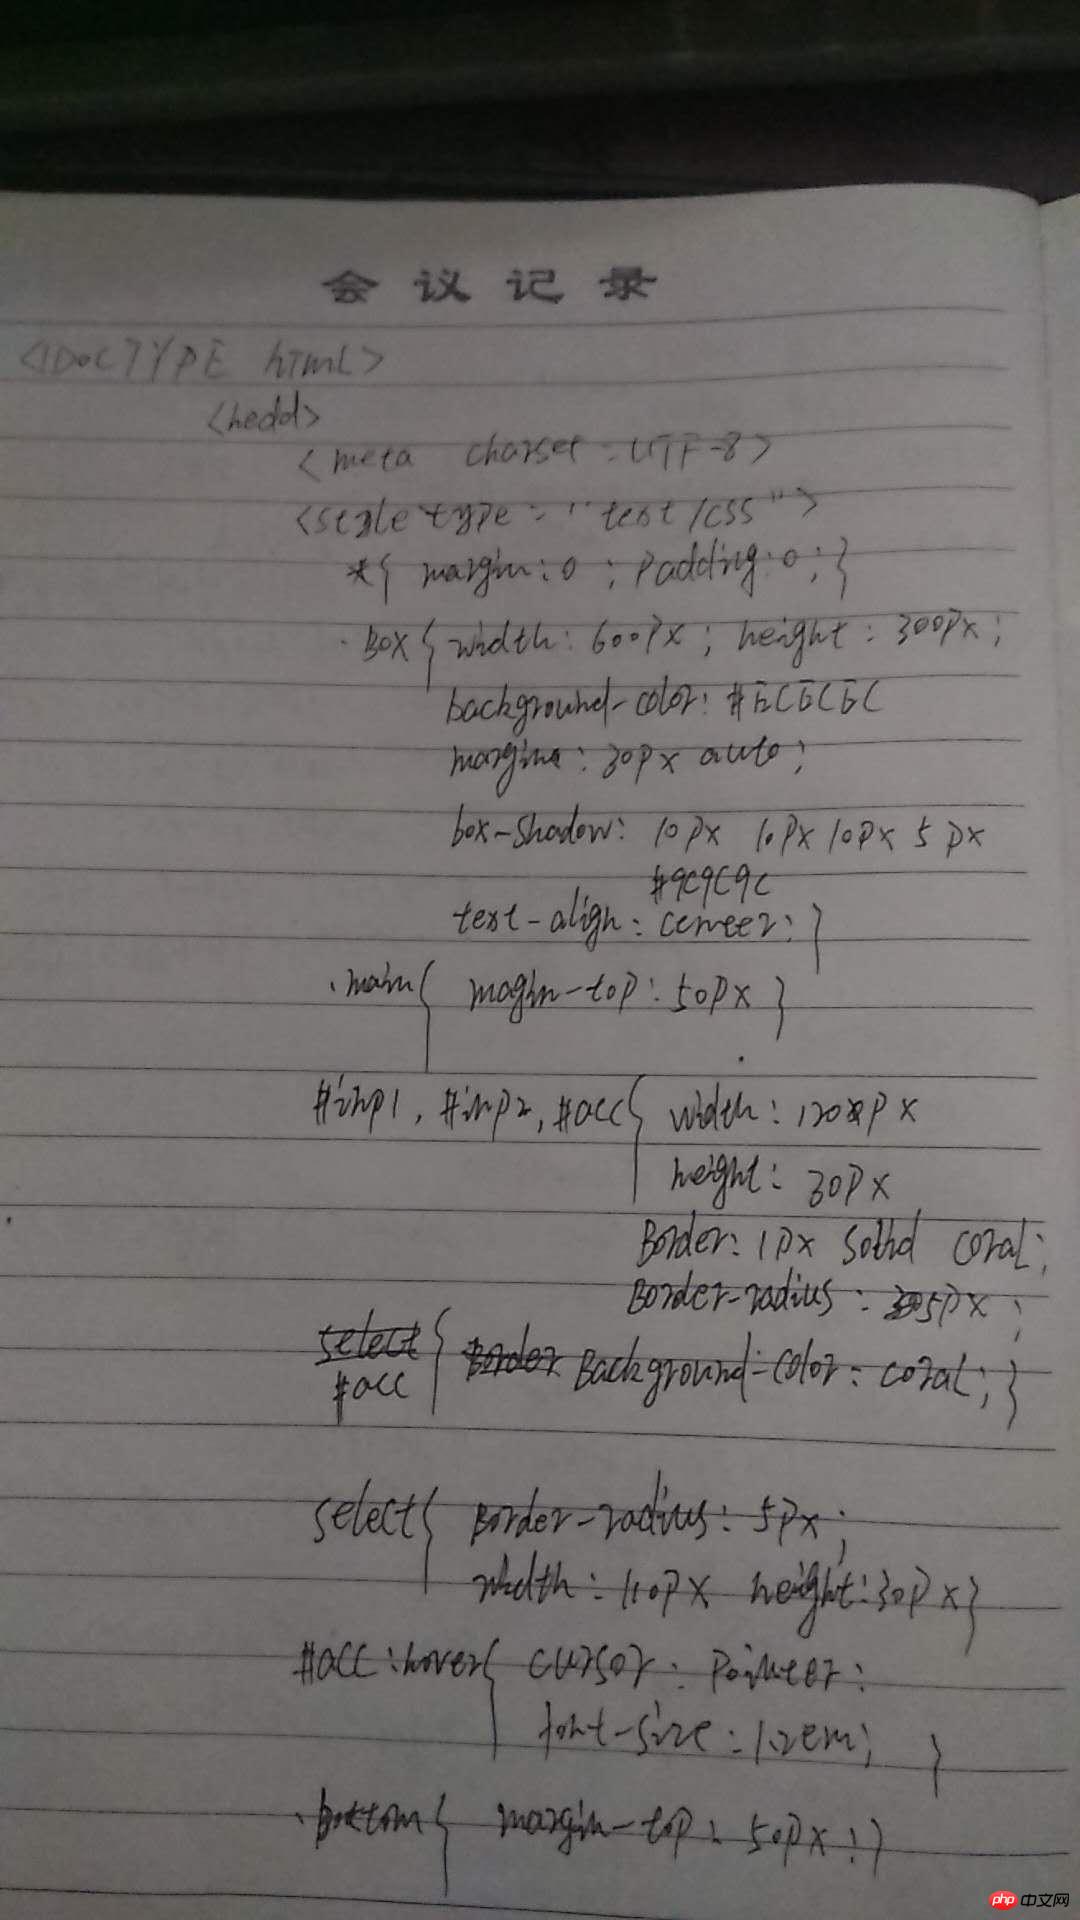 会议记录
<!DOCTYPE html>
<hedd>
<meta charset=UTF-8>
<style type="text/css">
*{ margin:0; padding:0;}
.Box{ width:600px; height:300px;
background-color:#ECECEC
margin:30px auto;
box-shadow: 10px 10px 10px 5px
#9C9C9C
text-align:center;}
.main{ magin-top:50px}
#inp1, #inp2, #acc{ width:120px
height:30px
Border:1px solid coral;
Border-radius:5px;
#acc { Background-color:coral;}
select{ Border-radius:5px;
width:110px height:30px}
#acc:hover{ cursor:pointer;
font-size:1.2em; }
.bottom{ margin-top:50px;}
php 中文网